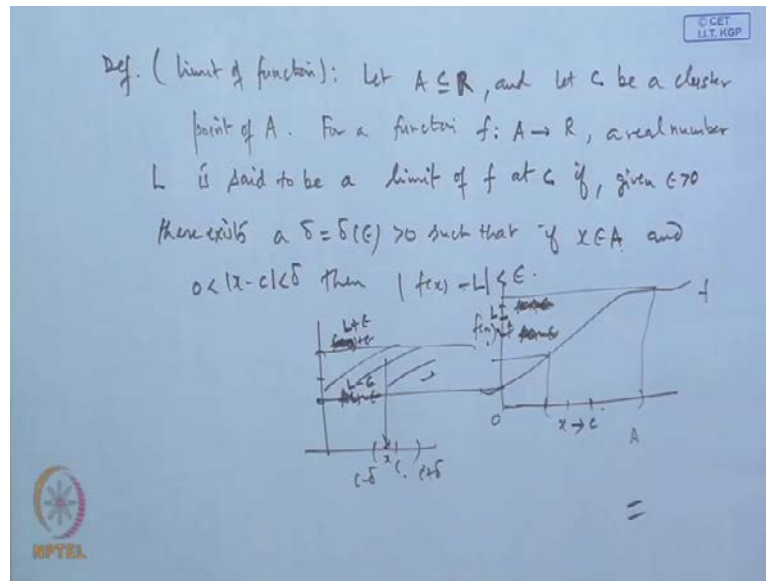 © CET
I.I.T. KGP
Def. (limit of function): Let A ⊆ R, and let c be a cluster
point of A. For a function f: A → R, a real number
L is said to be a limit of f at c if, given ε>0
there exists a δ = δ(ε) >0 such that if x∈A and
0<|x-c|<δ then |f(x) - L| < ε.
L+ε
L-ε
c-δ
x
c
c+δ
L
f(x)
f
0
x→c
A
=
NPTEL